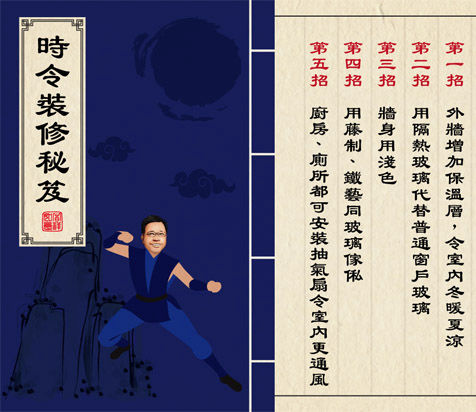 時令裝修秘笈
第一招 外牆增加保溫層，令室內冬暖夏涼
第二招 用隔熱玻璃代替普通窗戶玻璃
第三招 牆身用淺色
第四招 用藤制、鐵藝同玻璃傢俬
第五招 廚房、廁所都可安裝抽氣扇令室內更通風